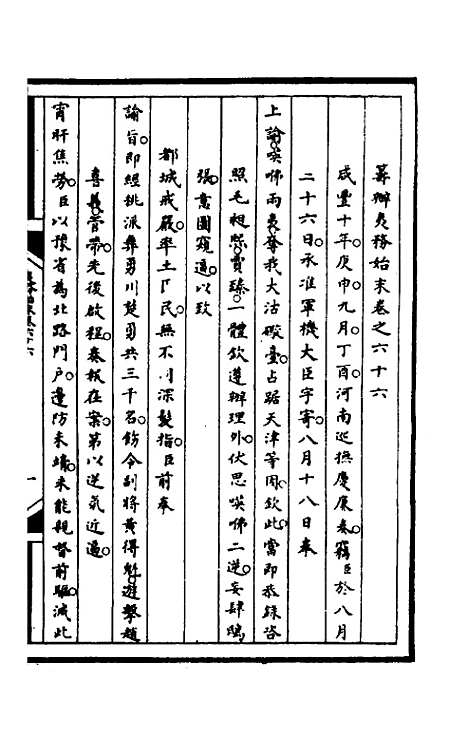 籌辦夷務始末卷之六十六
咸豐十年庚申九月丁酉河南巡撫慶廉奏竊臣於八月
二十六日承准軍機大臣字寄八月十八日奉
上諭嘆咈兩夷奪我大沽礮臺占踞天津等因欽此當即恭錄咨
照毛昶熙賈臻一體欽遵辦理外伏思嘆咈二逆妄肆鴟
張意圖窺逼以致
都城戒嚴率土臣民無不同深髮指臣前奉
諭旨即經挑派彝勇川楚勇共三千名飭令副將黃得魁遊擊趙
喜義管帶先後啟程奏報在案第以逆氛近逼
宵旰焦勞臣以豫省為北路門戶邊防未靖未能親督前驅滅此